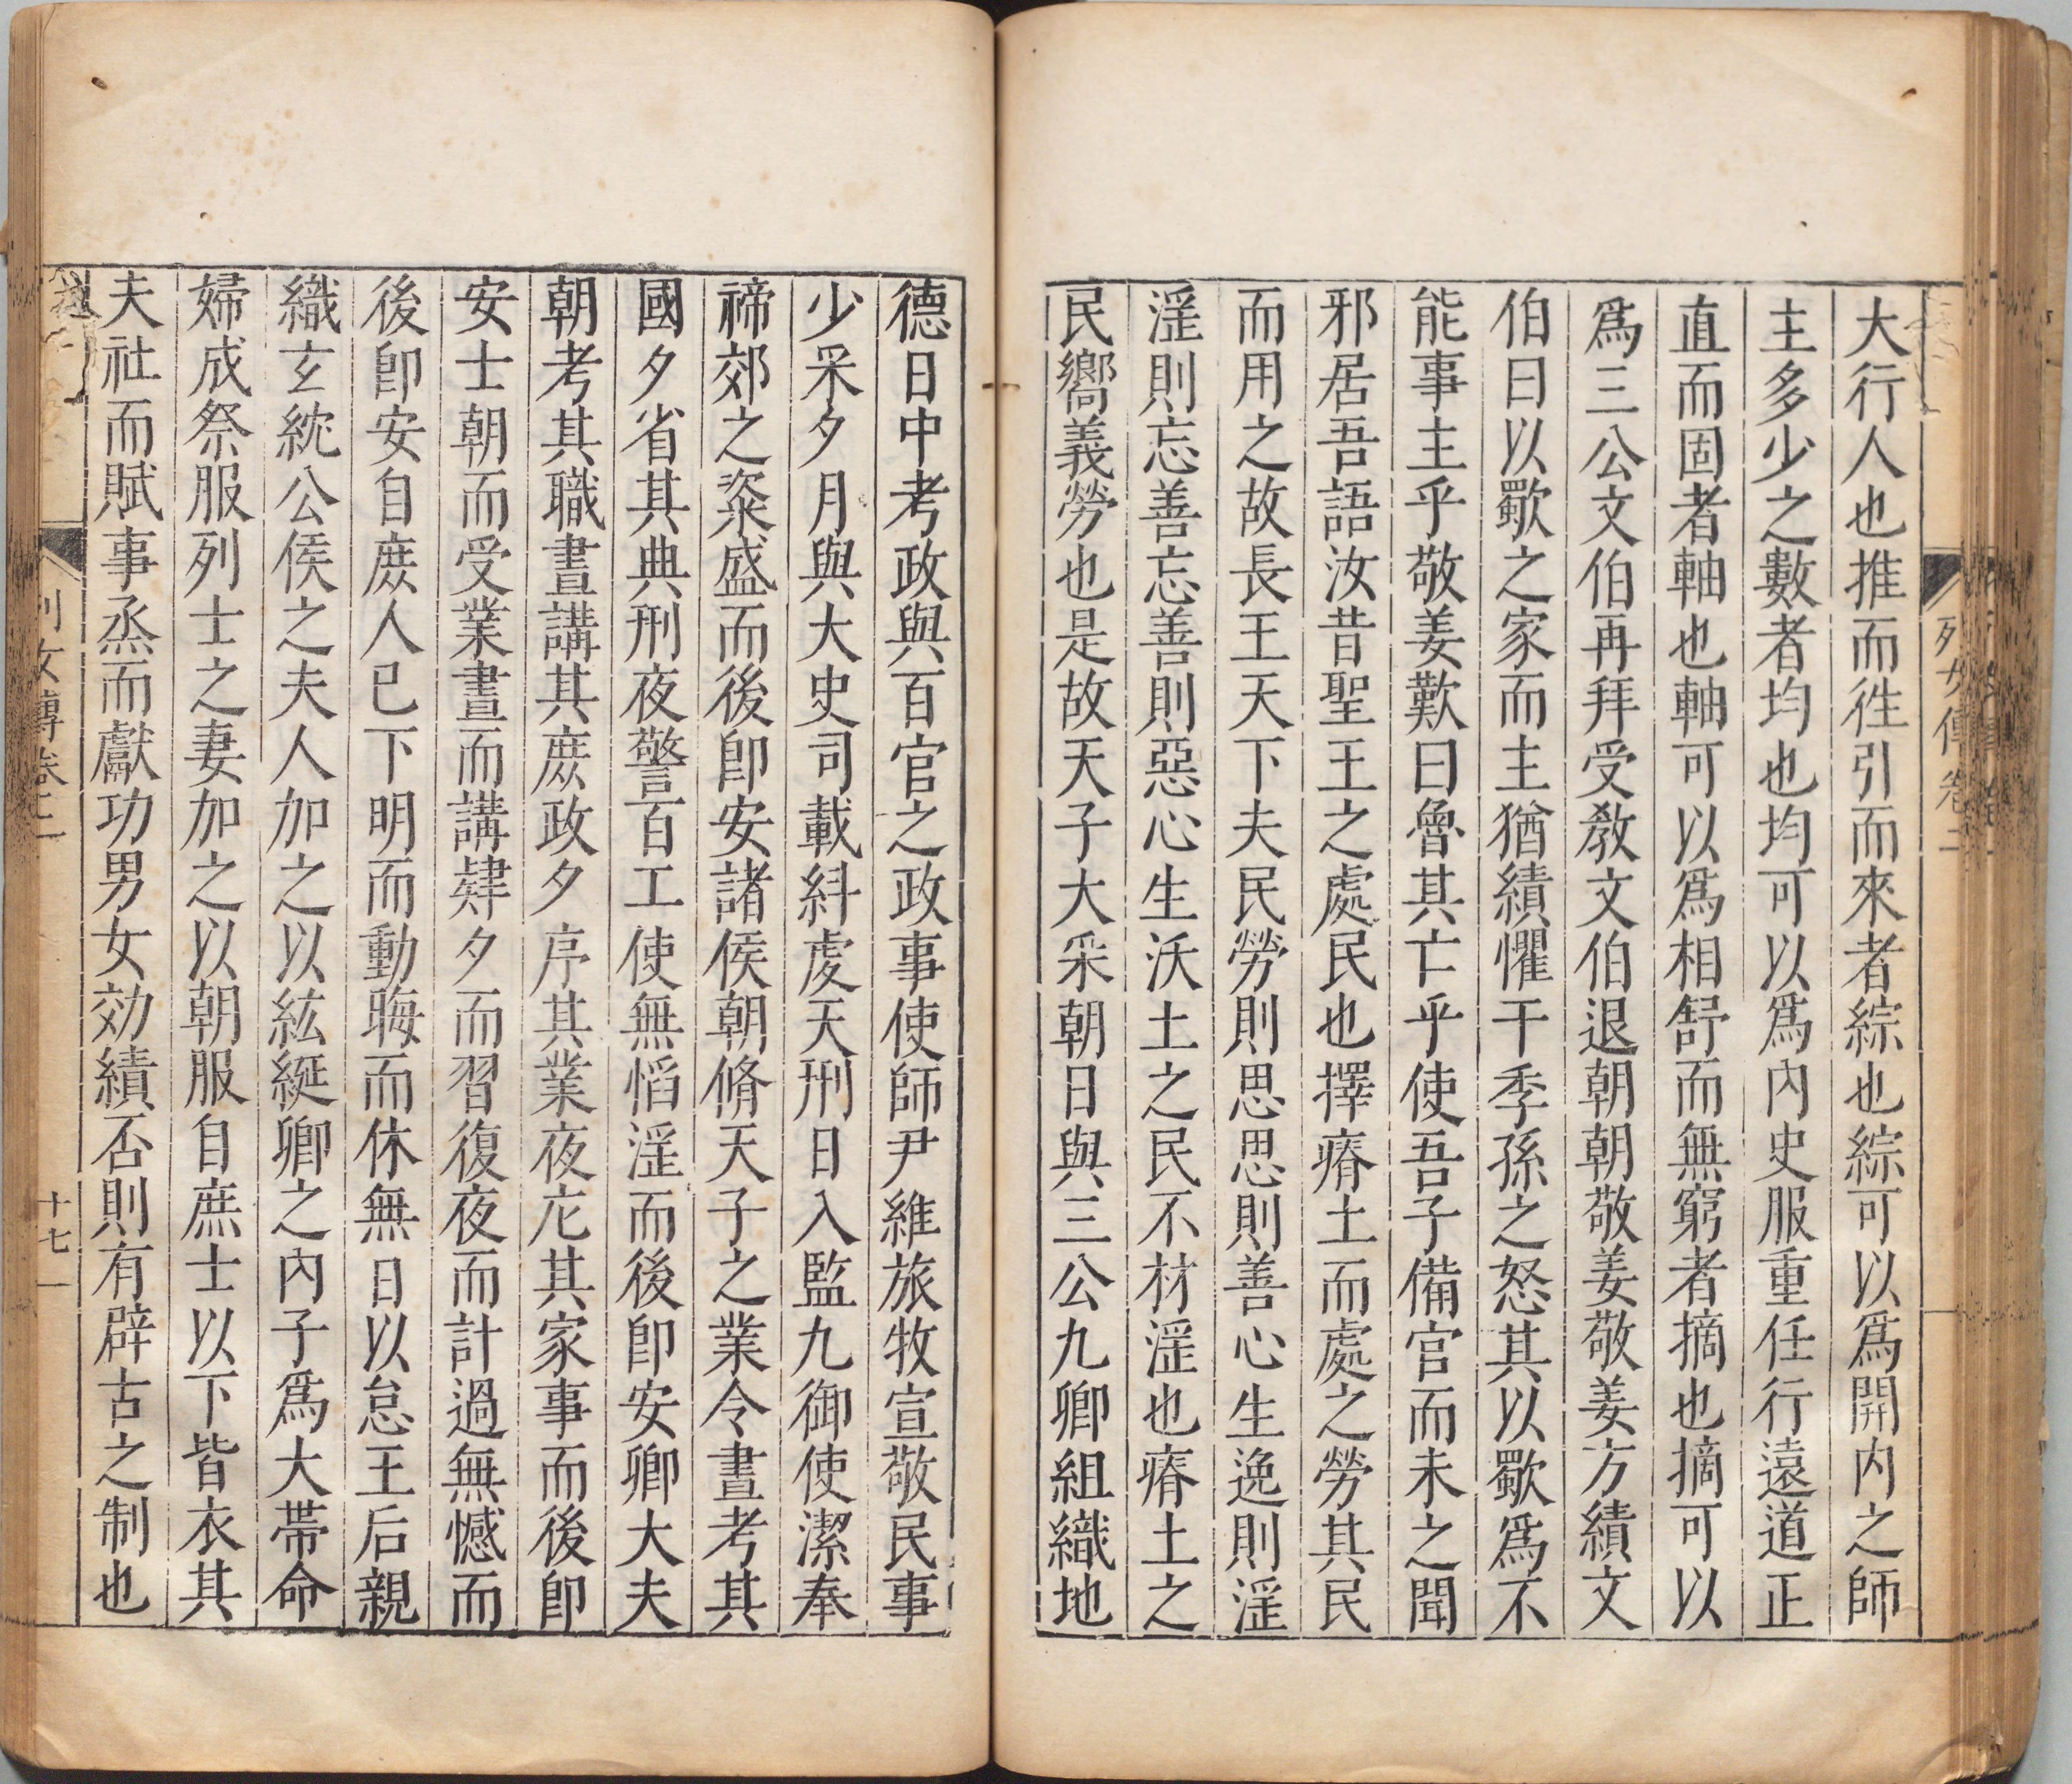 大行人也推而徃引而來者綜也綜可以爲開内之師
主多少之數者均也均可以爲内史服重任行遠道正
直而固者軸也軸可以爲相舒而無窮者摘也摘可以
爲三公文伯再拜受教文伯退朝朝敬姜敬姜方績文
伯曰以歜之家而主猶績懼干季孫之怒其以歜爲不
能事主乎敬姜歎曰魯其亡乎使吾子備官而未之聞
邪居吾語汝昔聖王之處民也擇瘠土而處之勞其民
而用之故長王天下夫民勞則思思則善心生逸則淫
淫則忘善忘善則惡心生沃土之民不材淫也瘠土之
民嚮義勞也是故天子大采朝日與三公九卿組織地
德日中考政與百官之政事使師尹維旅牧宣敬民事
少采夕月與大史司載糾虔天刑日入監九御使潔奉
禘郊之粢盛而後卽安諸侯朝脩天子之業令晝考其
國夕省其典刑夜警百工使無慆淫而後卽安卿大夫
朝考其職晝講其庶政夕序其業夜庀其家事而後卽
安士朝而受業晝而講肄夕而習復夜而計過無憾而
後卽安自庶人已下明而動晦而休無日以怠王后親
織玄紞公侯之夫人加之以紘綖卿之内子爲大帶命
婦成祭服列士之妻加之以朝服自庶士以下皆衣其
夫社而賦事烝而獻功男女効績否則有辟古之制也
列女傳卷二
列女傳卷二
十七